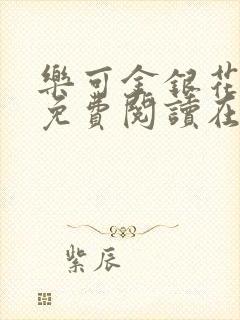 樂可金銀花
免費閱讀在
紫辰